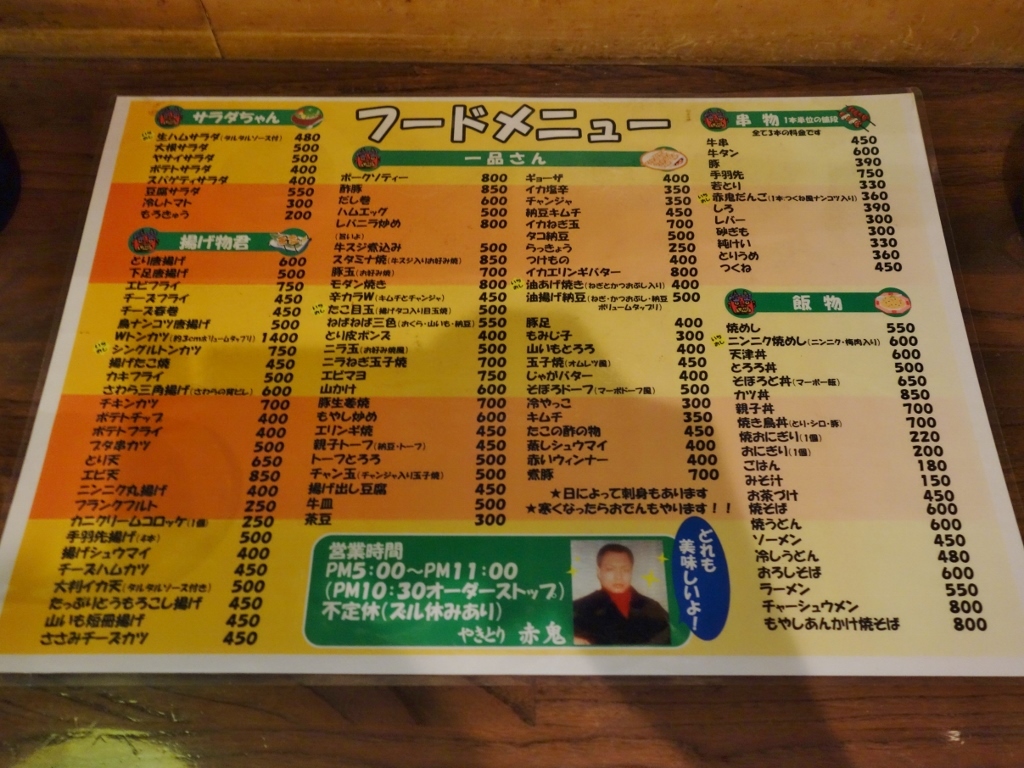 フードメニュー
サラダちゃん
生ハムサラダ(タルタルソース付) 480
大根サラダ 500
ヤサイサラダ 500
ポテトサラダ 400
スパゲティサラダ 400
豆腐サラダ 550
冷しトマト 300
もろきゅう 200
揚げ物君
とり唐揚げ 600
下足唐揚げ 500
エビフライ 750
チーズフライ 450
チーズ春巻 450
鳥ナンコツ唐揚げ 500
Wトンカツ(約3cmボリュームタップリ) 1400
シングルトンカツ 750
揚げたこ焼 450
カキフライ 500
さわら三角揚げ 600
チキンカツ 700
ポテトチップ 400
ポテトフライ 400
ブタ串カツ 500
とり天 650
エビ天 850
ニンニク丸揚げ 400
フランクフルト 250
カニクリームコロッケ(1個) 250
手羽先揚げ(4本) 500
揚げシュウマイ 400
チーズハムカツ 450
大判イカ天(タルタルソース付き) 500
たっぷりとうもろこし揚げ 450
山いも短冊揚げ 450
ささみチーズカツ 450
一品さん
ポークソティー 800
酢豚 850
だし巻 600
ハムエッグ 500
レバニラ炒め 800
牛スジ煮込み 500
スタミナ焼(牛スジ入りお好み焼) 850
豚玉(お好み焼) 700
モダン焼き 800
辛カラW(キムチとチャンジャ) 450
たこ目玉(揚げタコ入り目玉焼) 500
ねばねば三色(おくら・山いも・納豆) 550
とり皮ポンズ 400
ニラ玉(お好み焼風) 500
ニラねぎ玉子焼 700
エビマヨ 750
山かけ 600
豚生姜焼 700
もやし炒め 600
エリンギ焼 450
親子トーフ(納豆・トーフ) 450
トーフとろろ 500
チャン玉(チャンジャ入り玉子焼) 500
揚げ出し豆腐 450
牛皿 500
茶豆 300
ギョーザ 400
イカ塩辛 350
チャンジャ 350
納豆キムチ 450
イカねぎ玉 700
タコ納豆 500
らっきょう 250
つけもの 400
イカエリンギバター 800
油あげ焼き(ねぎとかつおぶし入り) 400
油揚げ納豆(ねぎ・かつおぶし・納豆 ボリュームタップリ) 500
豚足 400
もみじ子 300
山いもとろろ 400
玉子焼(オムレツ風) 400
じゃがバター 400
そぼろドーフ(マーボドーフ風) 500
冷やっこ 300
キムチ 350
たこの酢の物 450
蒸しシュウマイ 400
赤いウィンナー 400
煮豚 700
★日によって刺身もあります
★寒くなったらおでんもやります！！
串物 1本単位の値段
全て3本の料金です
牛串 450
牛タン 600
豚 390
手羽先 750
若とり 330
赤鬼だんご(1本つくね風ナンコツ入り) 360
しろ 390
レバー 300
砂ぎも 300
純けい 330
とりうめ 360
つくね 450
飯物
焼めし 550
ニンニク焼めし(ニンニク・梅肉入り) 600
天津丼 600
とろろ丼 500
そぼろど丼(マーボー飯) 650
カツ丼 850
親子丼 700
焼き鳥丼(とり・シロ・豚) 700
焼おにぎり(1個) 220
おにぎり(1個) 200
ごはん 180
みそ汁 150
お茶づけ 450
焼そば 600
焼うどん 600
ソーメン 450
冷しうどん 480
おろしそば 600
ラーメン 550
チャーシュウメン 800
もやしあんかけ焼そば 800
営業時間
PM5:00～PM11:00
(PM10:30オーダーストップ)
不定休(ズル休みあり)
やきとり 赤鬼
どれも
美味しいよ！